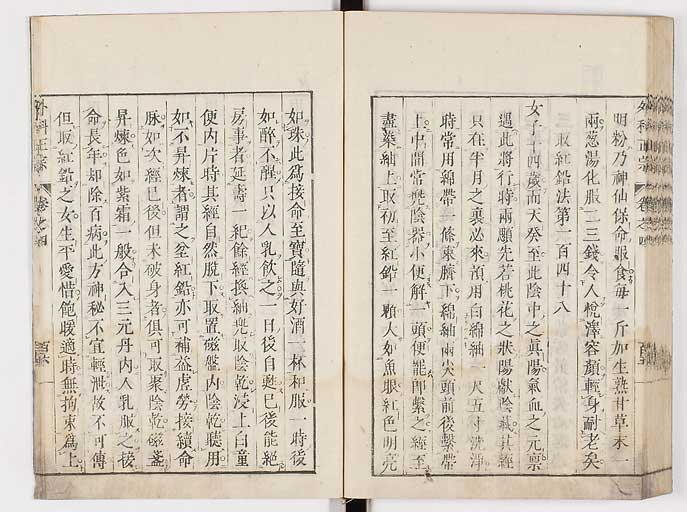 外科正宗 卷之四
明粉乃神仙保命服食每一斤加生熟甘草末一
兩葱湯化服二三錢令人悅澤容顏輕身耐老矣
三取紅鉛法第一百四十八
女子十四歲而天癸至此陰中之真陽氣血之元禀
遇此將行時兩顋先若桃花之狀陽獻陰藏其經
只在半月之裏必來預用白綿紬一尺五寸洗淨
時常用綿帶一條束臍下綿紬兩尖頭前後繫帶
上中間常攙陰器小便解一頭便罷即繫之經至
盡染紬上取初至紅鉛一顆大如魚眼紅色明亮
如珠此為接命至寶隨與好酒一杯和服一時後
如醉不醒只以人乳飲之一日後自甦已後能絕
房事者延壽一紀餘經換紬兜取陰乾浸上白童
便內片時其經自然脫下取置磁盤內陰乾聽用
如不昇煉者謂之金紅鉛亦可補益虛勞接續命
脉如次經已後但未破身者俱可取聚陰乾磁盞
昇煉色如紫霜一般合入三元丹內人乳服之接
命長年却除百病此方神秘不宜輕泄故不可傳
但取紅鉛之女生平愛惜飽暖適時無拘束為上
外科正宗 卷之四